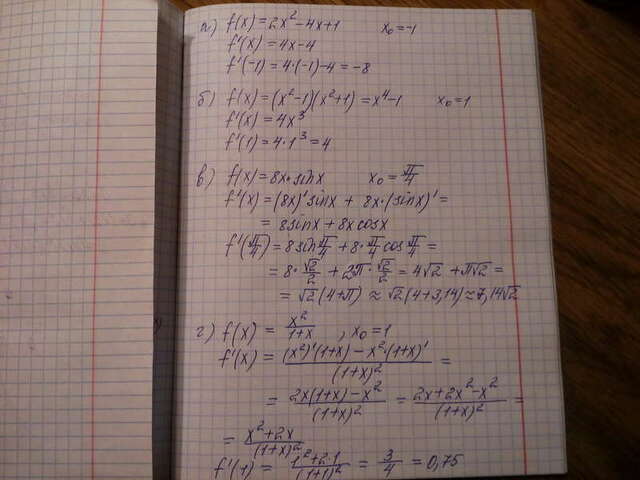 а) f(x) = 2x² - 4x + 1    x₀ = -1
f'(x) = 4x - 4
f'(-1) = 4·(-1) - 4 = -8
б) f(x) = (x² - 1)(x² + 1) = x⁴ - 1    x₀ = 1
f'(x) = 4x³
f'(1) = 4·1³ = 4
в) f(x) = 8x·sinx    x₀ = π/4
f'(x) = (8x)'sinx + 8x·(sinx)' =
= 8sinx + 8x cosx
f'(π/4) = 8sin π/4 + 8·π/4 cos π/4 =
= 8·√2/2 + 2π·√2/2 = 4√2 + π√2 =
= √2(4+π) ≈ √2(4+3,14) ≈ 7,14√2
г) f(x) = x²/(1+x) , x₀ = 1
f'(x) = ((x²)'(1+x) - x²·(1+x)')/(1+x)² =
= (2x(1+x) - x²)/(1+x)² = (2x + 2x² - x²)/(1+x)² =
= (x² + 2x)/(1+x)²
f'(1) = (1² + 2·1)/(1+1)² = 3/4 = 0,75